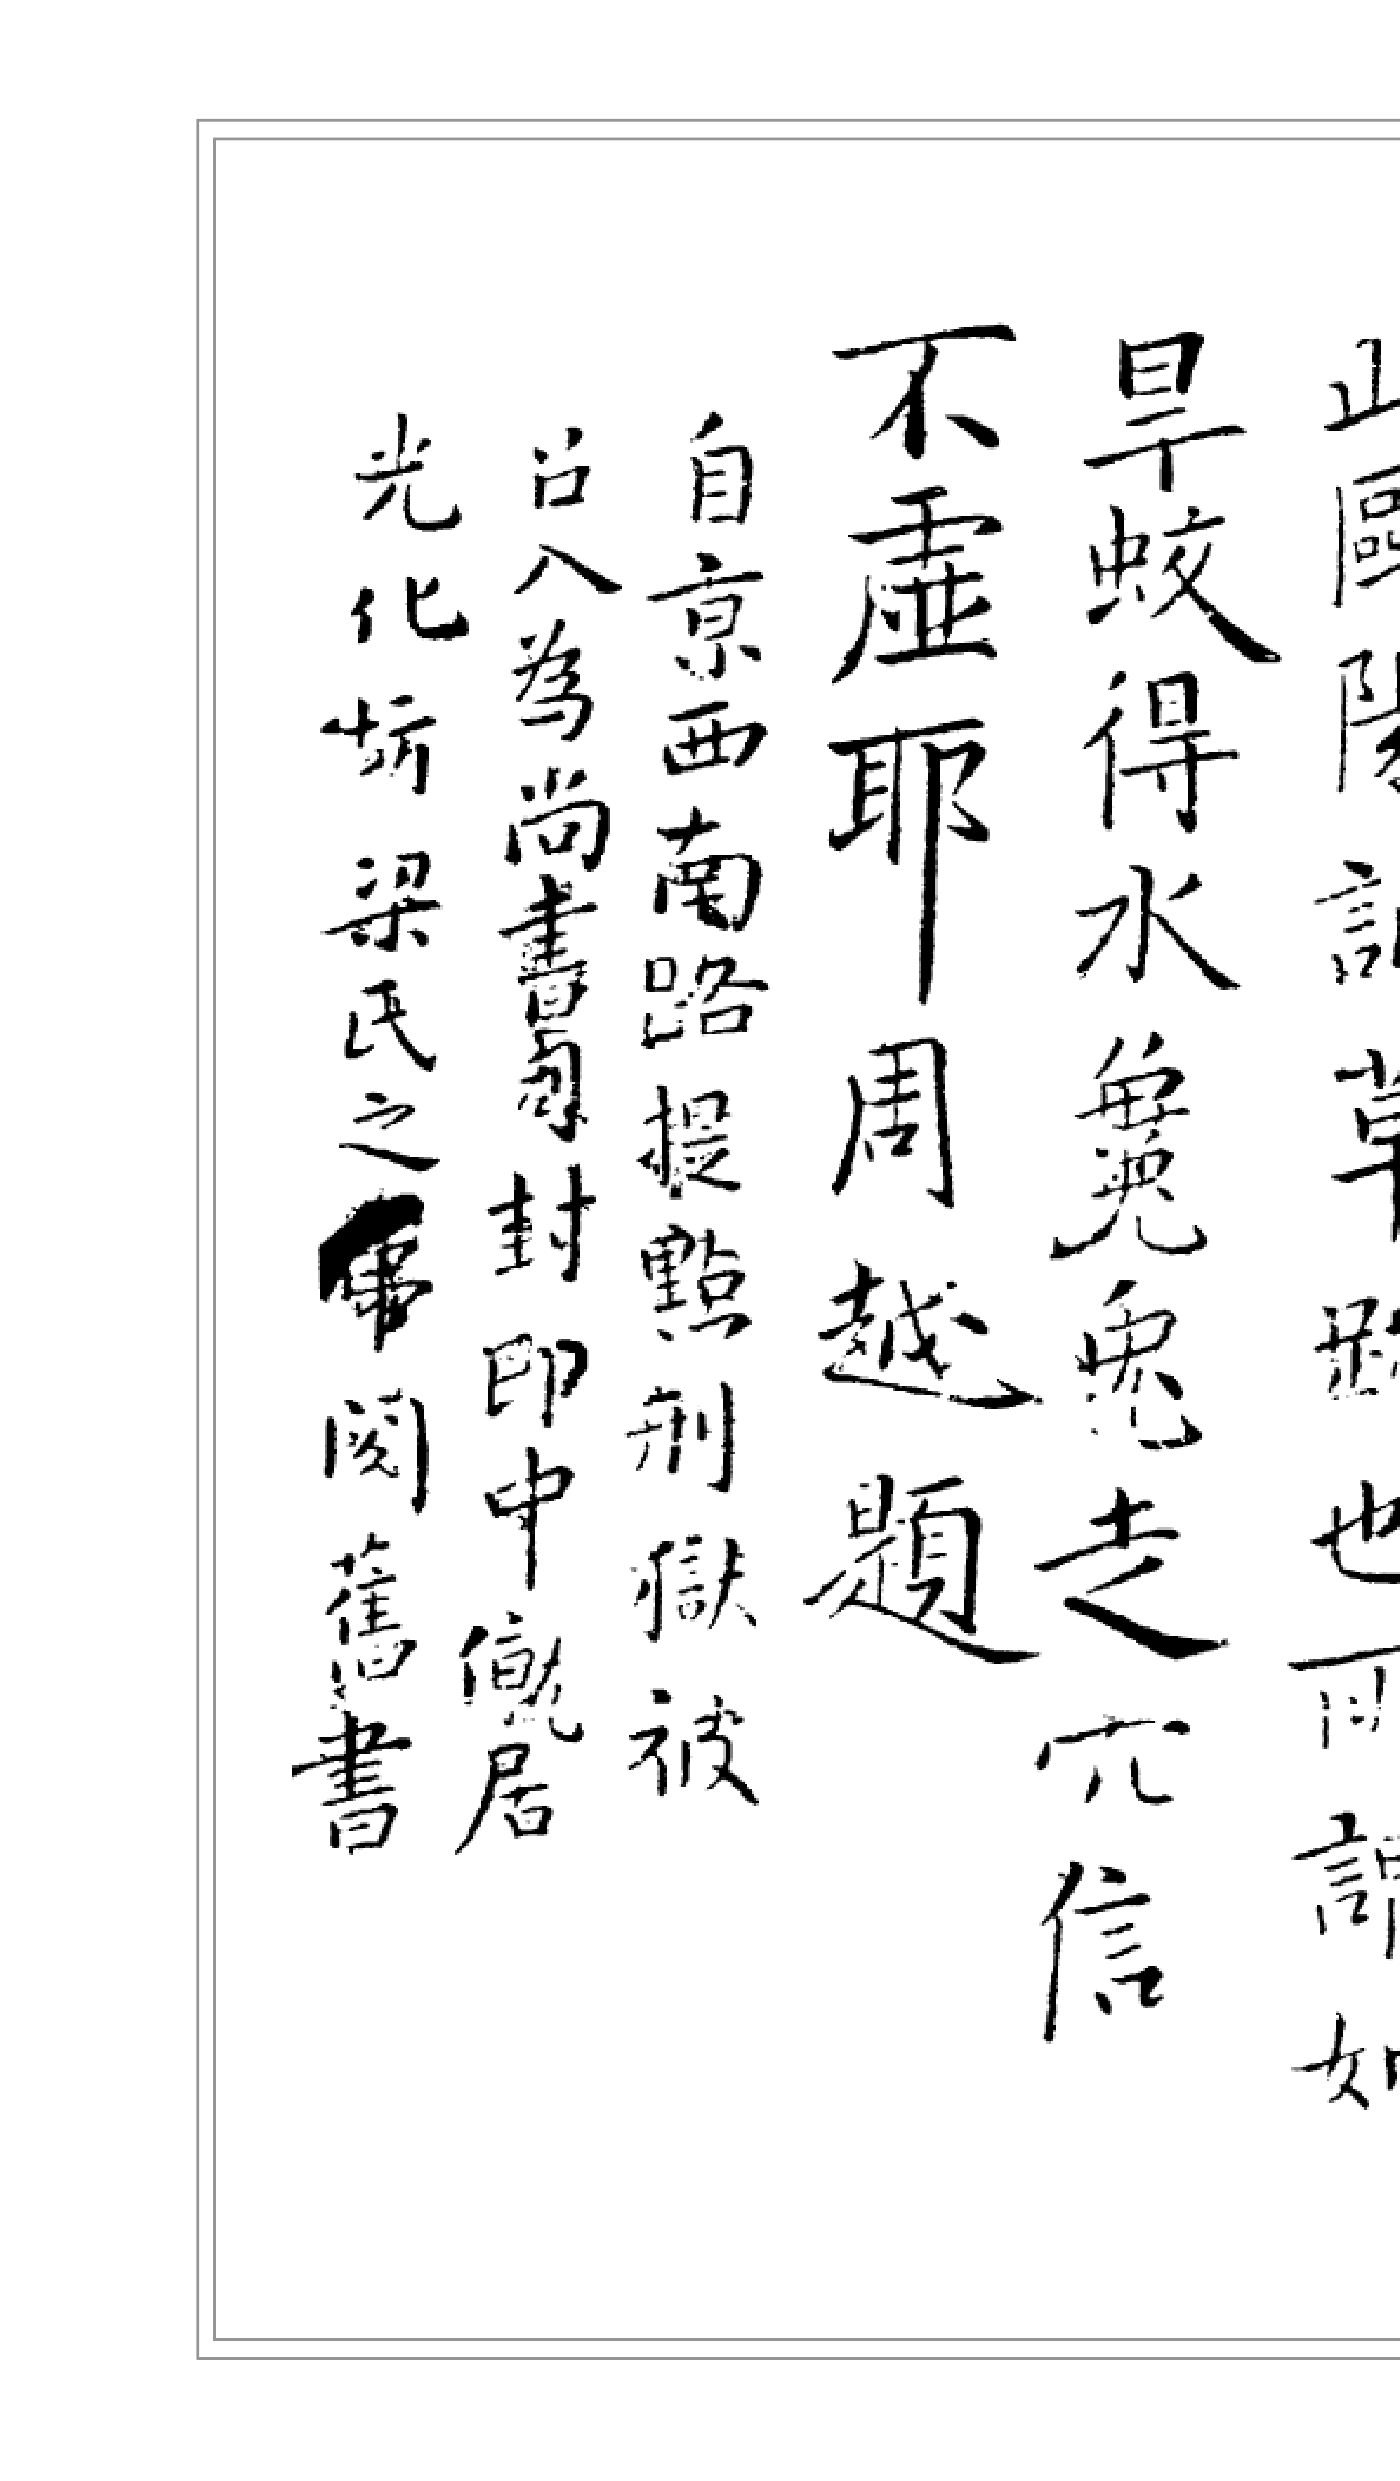 此歐陽詢草也謂如
旱蛟得水毚兔走穴信
不虛耶周越題
自京西南路提點刑獄被
召入為尚書司封郎中僦居
光化坊梁氏之第閱舊書